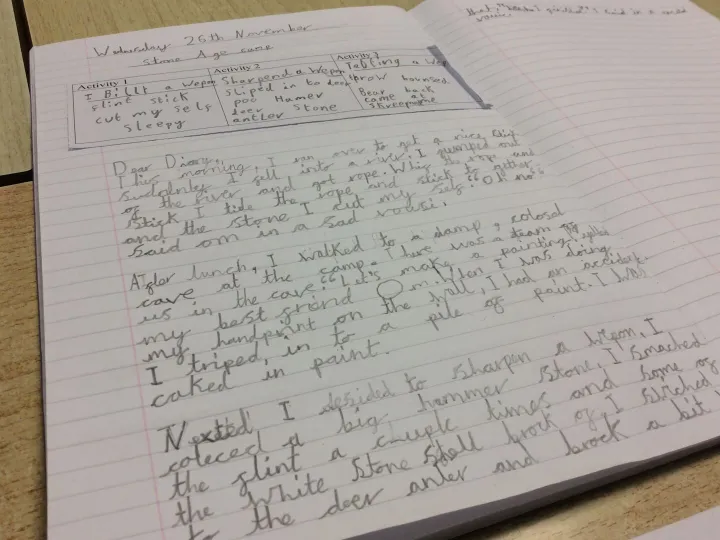 Wednesday 25th November
Stone Age cave
Activity 1
I Billt a Wepon
flint stick
cut my self
sleepy
Activity 2
Sharpend a Wepon
sliped in to deer
poo Hamer
deer stone
antler
Activity 3
a Wep
prow bounsed
Bear back
came at
Dear Diary,
This morning, I ran over to get a nice
suddnly I fell into a river. I jumped out
of the river and got rope. the rope and
stick I tide the rope and stick to gether
and the stone I cut my self. "Oh no"
said om in a sad
After lunch, I walked to a damp, colosal
cave at the camp. There was a team
us in the cave. "Let's make a painting"
my best friend Om. When, I was doing
my handprint on the wall, I had an accident.
I triped, in to a pile of paint. I was
caked in paint.
Next I desided to sharpen a I
coleced a big hammer stone, I smached
the flint a couple times and some of
the white stone shell brock of, I stiched
to the deer anler and brock a bit
that, I said in a